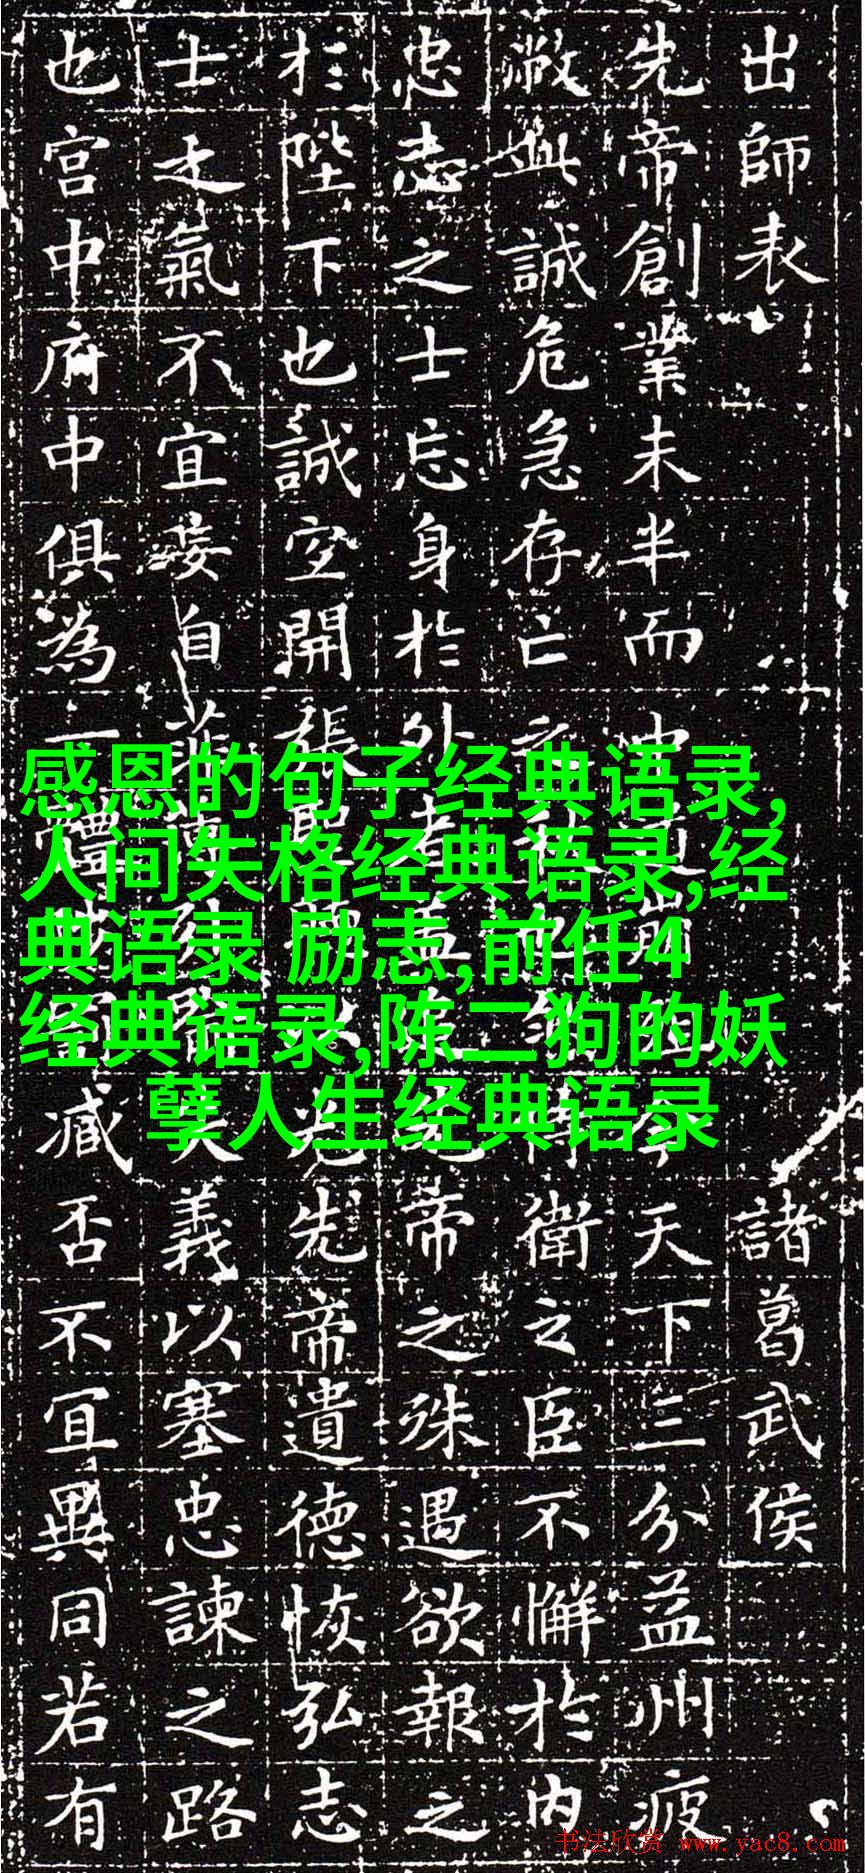 出師表 諸葛武侯
先帝創業未半而中道崩殂今天下三分益州疲
敝此誠危急存亡之秋也然侍衛之臣不懈於內
忠志之士忘身於外者蓋追先帝之殊遇欲報之
於陛下也誠宜開張聖聽以光先帝遺德恢弘志
士之氣不宜妄自菲薄引喻失義以塞忠諫之路
也宮中府中俱為一體陟罰臧否不宜異同若有
感恩的句子经典语录,
人间失格经典语录,经
典语录 励志,前任4
经典语录,陈二狗的妖
孽人生经典语录
书法欣赏 www.yac8.com